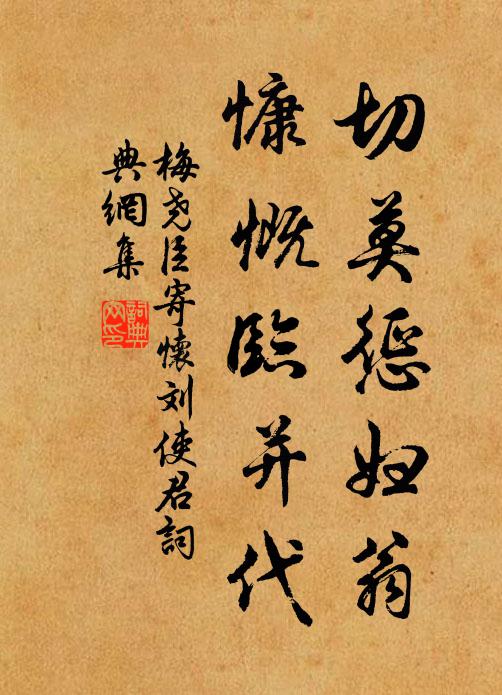 切莫惩妇翁
慷慨临并代
梅尧臣寄怀刘使君词
典网集
词典
网印